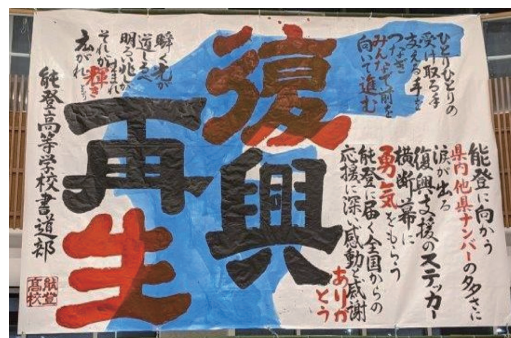 ひとりひとりの
受け取る手
支える手を
つなぎ
みんなで前を
向いて進む
能登に向かう
県内他県ナンバーの多さに
涙が出る
復興支援のステッカー
横断幕に
勇気をもらう
能登に届く全国からの
応援に深い感動と感謝
ありがとう
復興
再生
瞬く光が
明るい兆が
それが輝き
広がれ
能登高等学校書道部
能登
高校